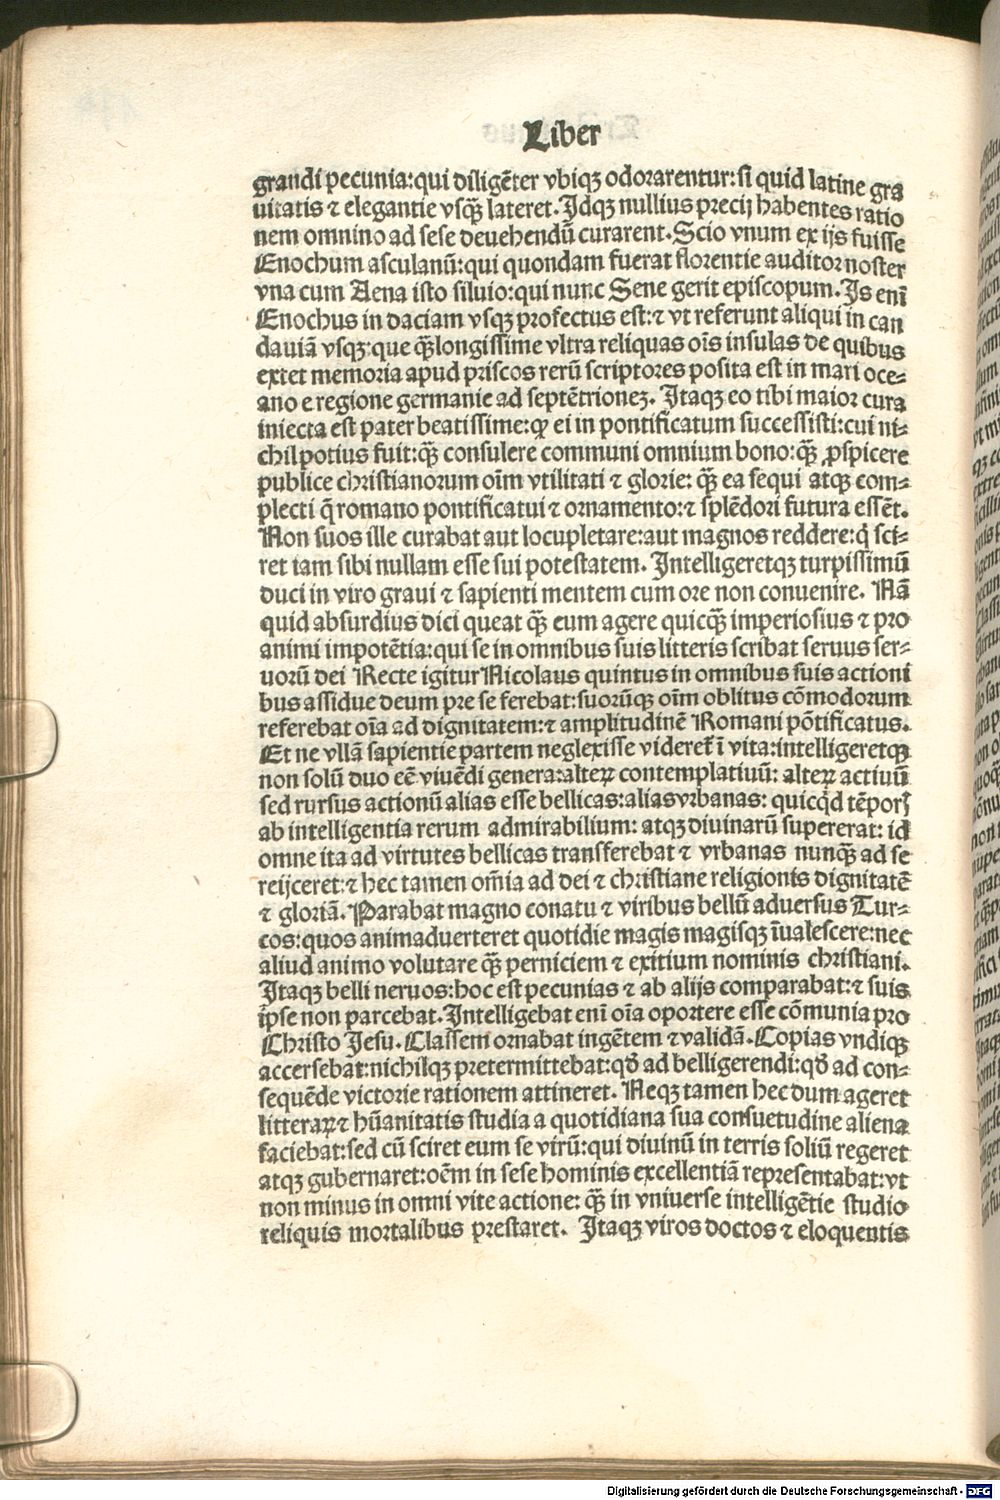 Liber
grandi pecunia:qui diligẽter vbiqꝫ odorarentur:si quid latine gra
uitatis ⁊ elegantie vsqꝫ̃ lateret. Idqꝫ nullius precij habentes ratio
nem omnino ad sese deuehendũ curarent. Scio vnum ex ijs fuisse
Enochum asculanũ:qui quondam fuerat florentie auditor noster
vna cum Aena isto siluio:qui nunc Sene gerit episcopum. Is enĩ
Enochus in daciam vsqꝫ profectus est:⁊ vt referunt aliqui in can
dauiã vsqꝫ:que qꝫ̃longissime vltra reliquas oĩs insulas de quibus
extet memoria apud priscos rerũ scriptores posita est in mari oce⸗
ano e regione germanie ad septẽtrionez. Itaqꝫ eo tibi maior cura
iniecta est pater beatissime:ꝙ ei in pontificatum successisti:cui ni⸗
chil potius fuit:qꝫ̃ consulere communi omnium bono:qꝫ̃ ꝓspicere
publice christianorum oĩm vtilitati ⁊ glorie: qꝫ̃ ea sequi atqꝫ com⸗
plecti q̃ romano pontificatui ⁊ ornamento:⁊ splẽdori futura essẽt.
Non suos ille curabat aut locupletare:aut magnos reddere:q̇ sci⸗
ret iam sibi nullam esse sui potestatem. Intelligeretqꝫ turpissimũ
duci in viro graui ⁊ sapienti mentem cum ore non conuenire. Nã
quid absurdius dici queat qꝫ̃ eum agere quicqꝫ̃ imperiosius ⁊ pro
animi impotẽtia:qui se in omnibus suis litteris scribat seruus ser⸗
uorũ dei Recte igitur Nicolaus quintus in omnibus suis actioni
bus assidue deum pre se ferebat:suorũqꝫ oĩm oblitus cõmodorum
referebat oĩa ad dignitatem:⁊ amplitudinẽ Romani põtificatus.
Et ne vllã sapientie partem neglexisse videret̃ ĩ vita:intelligeretqꝫ
non solũ duo eẽ viuẽdi genera:alteꝝ contemplatiuũ: alteꝝ actiuũ
sed rursus actionũ alias esse bellicas:alias vrbanas: quicq̇d tẽporĩ
ab intelligentia rerum admirabilium: atqꝫ diuinarũ supererat: id
omne ita ad virtutes bellicas transferebat ⁊ vrbanas nunqꝫ̃ ad se
reijceret:⁊ hec tamen om̃ia ad dei ⁊ christiane religionis dignitatẽ
⁊ gloriã. Parabat magno conatu ⁊ viribus bellũ aduersus Tur⸗
cos:quos animaduerteret quotidie magis magisqꝫ ĩualescere:nec
aliud animo volutare qꝫ̃ perniciem ⁊ exitium nominis christiani.
Itaqꝫ belli neruos:hoc est pecunias ⁊ ab alijs comparabat:⁊ suis
ĩpse non parcebat. Intelligebat enĩ oĩa oportere esse cõmunia pro
Christo Jesu. Classem ornabat ingẽtem ⁊ validã. Copias vndiqꝫ
accersebat:nichilqꝫ pretermittebat:qď ad belligerendi:qď ad con⸗
sequẽde victorie rationem attineret. Neqꝫ tamen hec dum ageret
litteraꝝ ⁊ hũanitatis studia a quotidiana sua consuetudine aliena
faciebat:sed cũ sciret eum se virũ:qui diuinũ in terris soliũ regeret
atqꝫ gubernaret:oẽm in sese hominis excellentiã representabat:vt
non minus in omni vite actione: qꝫ̃ in vniuerse intelligẽtie studio
reliquis mortalibus prestaret. Itaqꝫ viros doctos ⁊ eloquentis
Digitalisierung gefördert durch die Deutsche Forschungsgemeinschaft - DFG